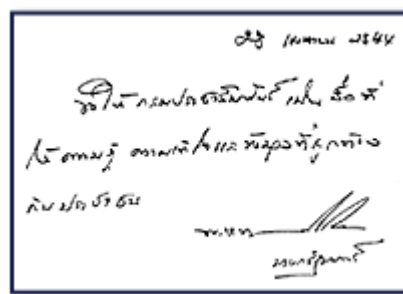 ๒๕ เมษายน ๒๕๔๔
ขอให้ กรมประชาสัมพันธ์ เป็น สื่อ ที่
ให้ ความรู้ ความเข้าใจและ ข้อมูลที่ถูกต้อง
กับ ประชาชน
นายกรัฐมนตรี